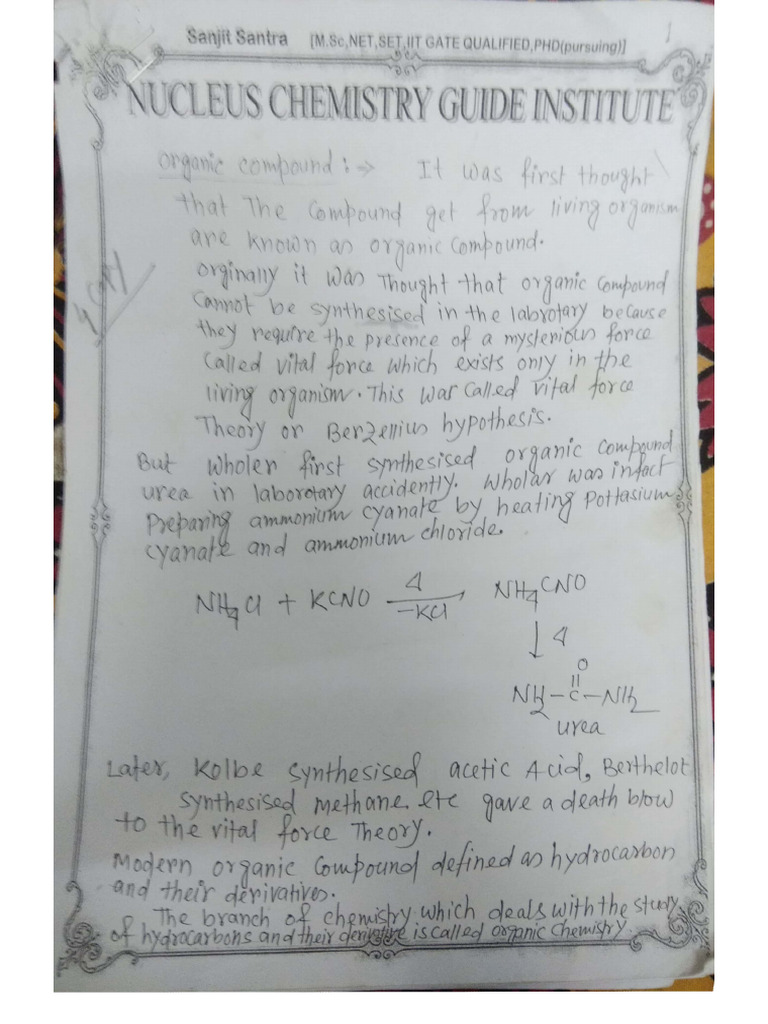 Sanjit Santra [M.Sc,NET,SET,IIT GATE QUALIFIED,PHD(pursuing)] 1
NUCLEUS CHEMISTRY GUIDE INSTITUTE
organic compound :→ It was first thought
that The compound get from living organism
are known as organic compound.
orginally it was Thought that organic compound
cannot be synthesised in the labrotary because
they require the presence of a mysterious force
called vital force which exists only in the
living organism. This was called vital force
Theory or Berzellius hypothesis.
But wholer first synthesised organic compound
urea in laborotary accidently. Wholar was infact
Preparing ammonium cyanate by heating Pottasium
cyanate and ammonium chloride.
NH4Cl + KCNO Δ → -KCl NH4CNO
↓ Δ
O
NH2-C-NH2
urea
Later, Kolbe synthesised acetic Acid, Berthelot
synthesised methane. etc gave a death blow
to the vital force Theory.
Modern organic compound defined as hydrocarbon
and their derivatives.
The branch of chemistry which deals with the study
of hydrocarbons and their derivative is called organic chemistry.